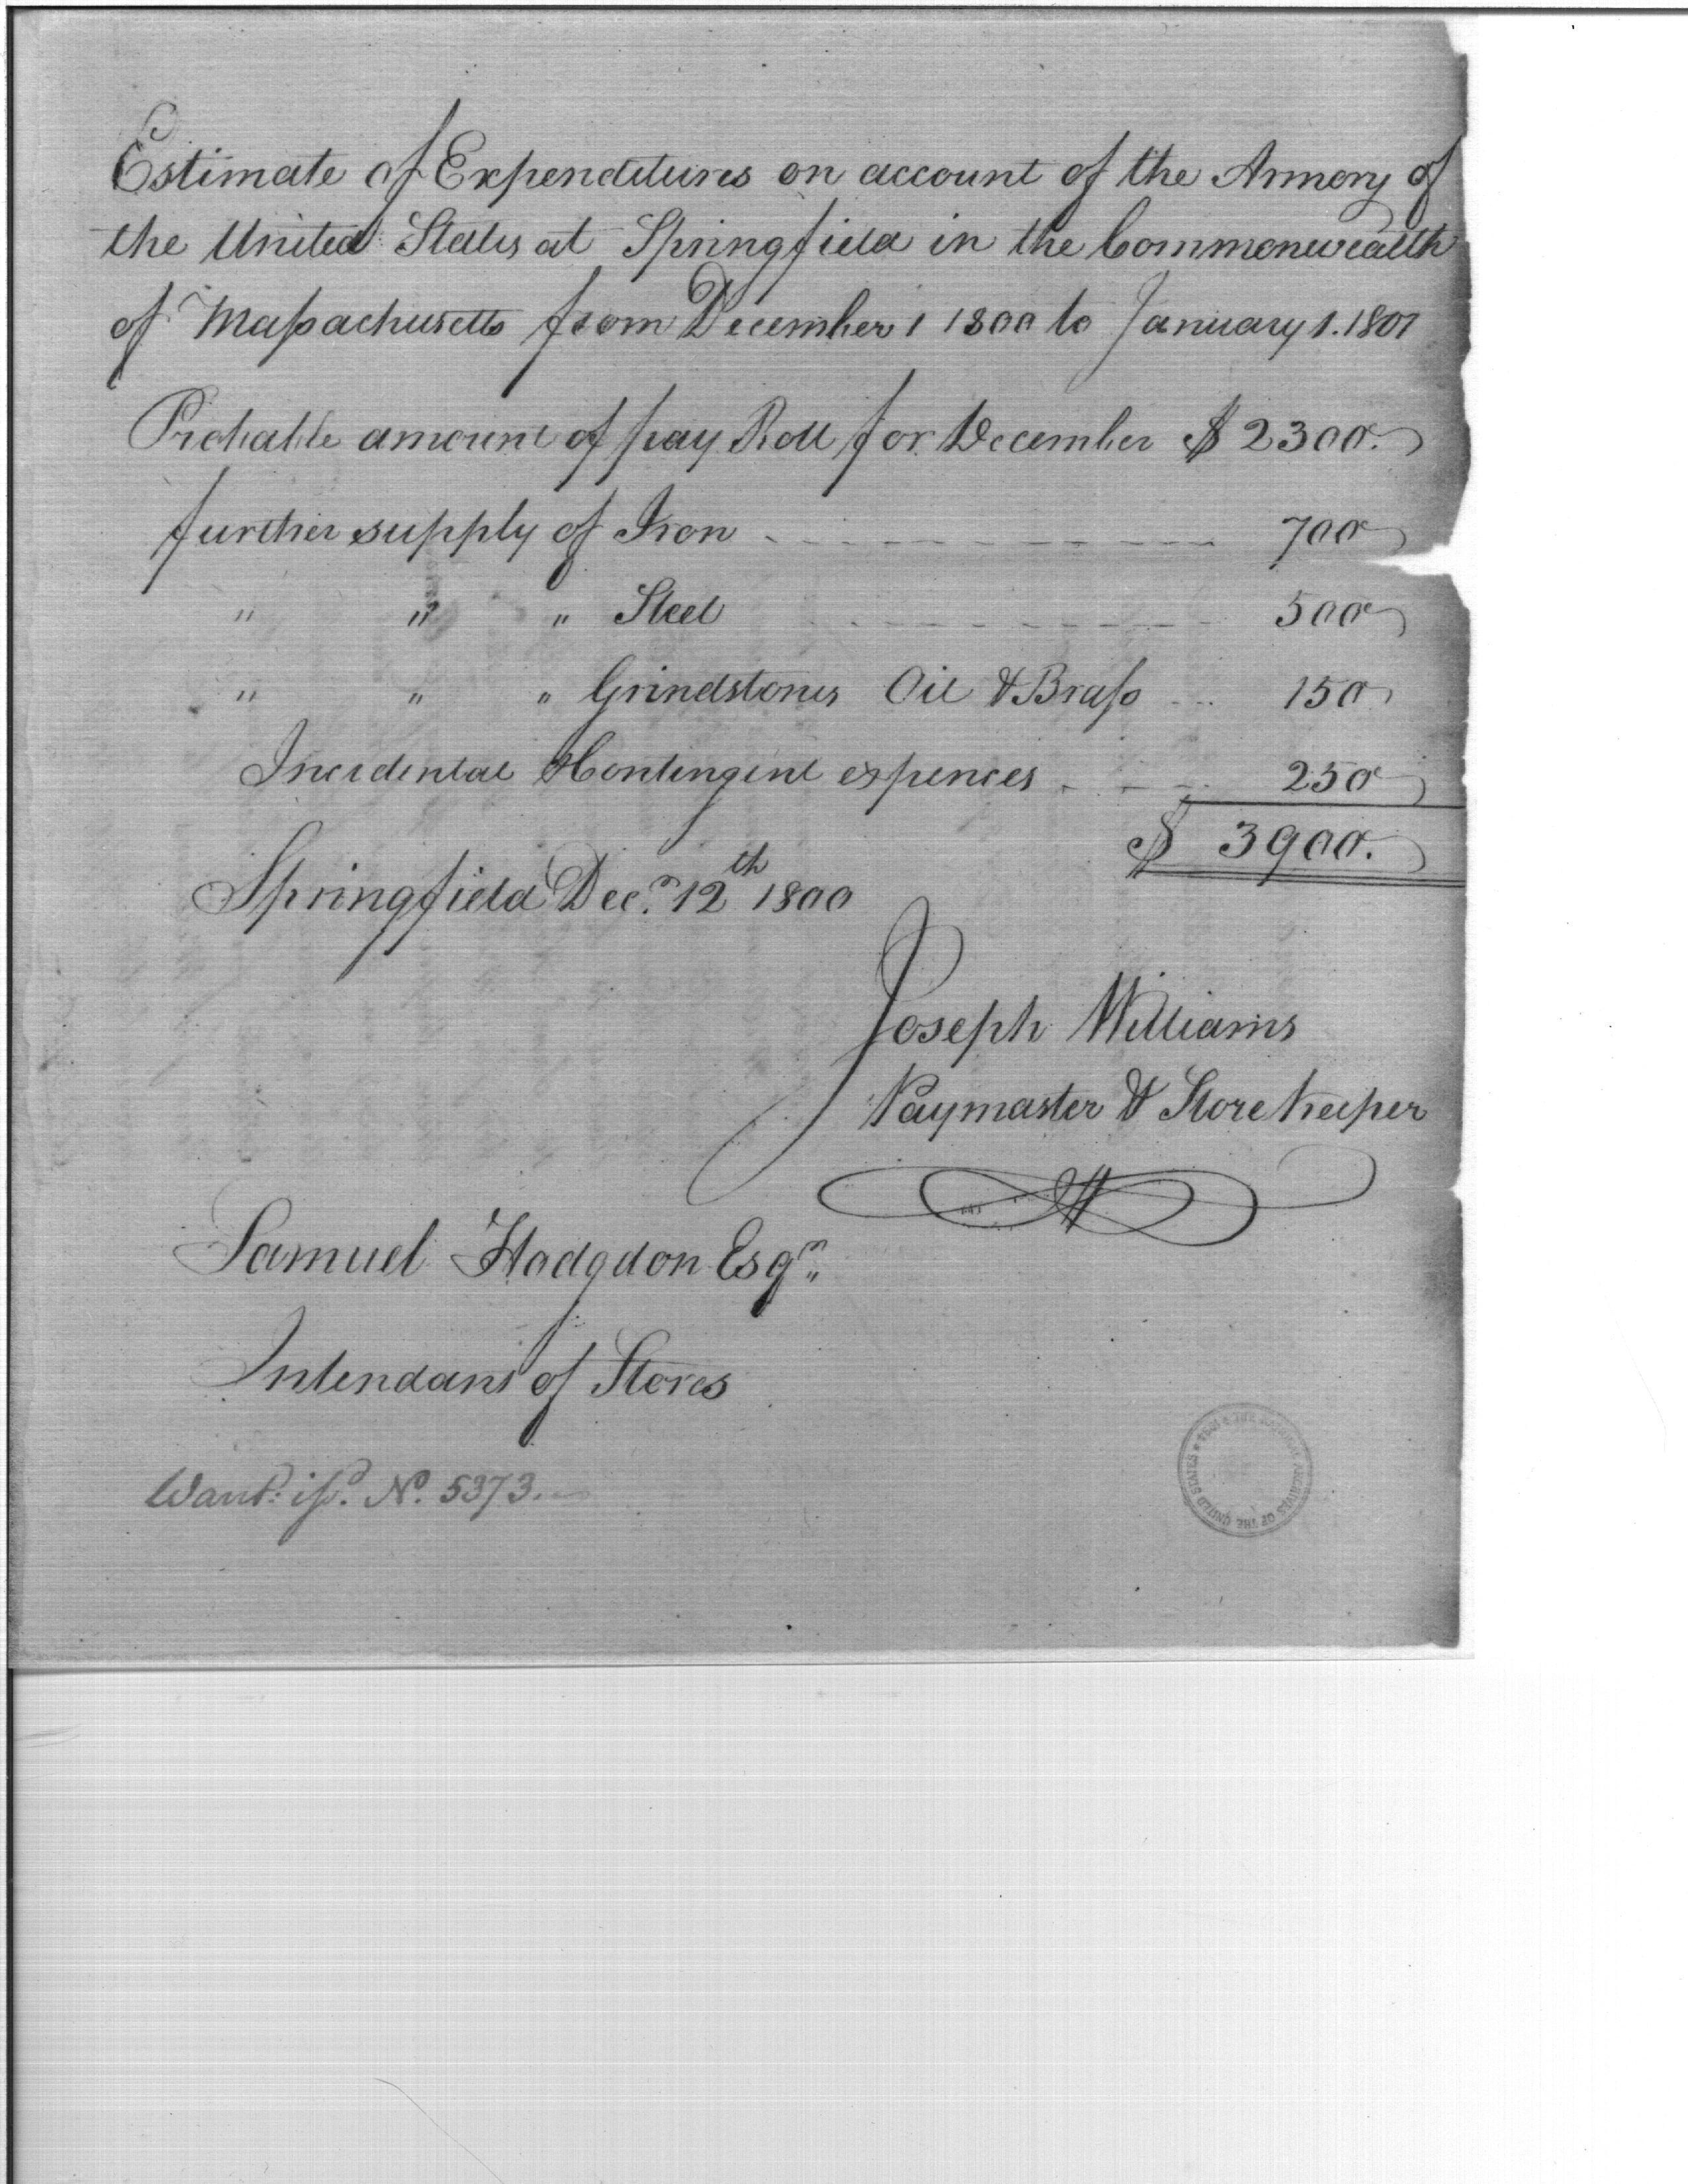 Estimate of Expenditures on account of the Armory of
the United States at Springfield in the Commonwealth
of Maſsachusetts from December 1 1800 to January 1. 1801
Probable amount of pay Roll for December $ 2300.
further supply of Iron 700
" " " Steel 500
" " " Grindstones Oil & Braſs 150
Incidental & Contingent expences 250
$ 3900.
Springfield Decr. 12th 1800
Joseph Williams
Paymaster & Store keeper
Samuel Hodgdon Esqr.
Intendant of Stores
Warrt. iſs. No. 5373.
ARCHIVES OF THE UNITED STATES